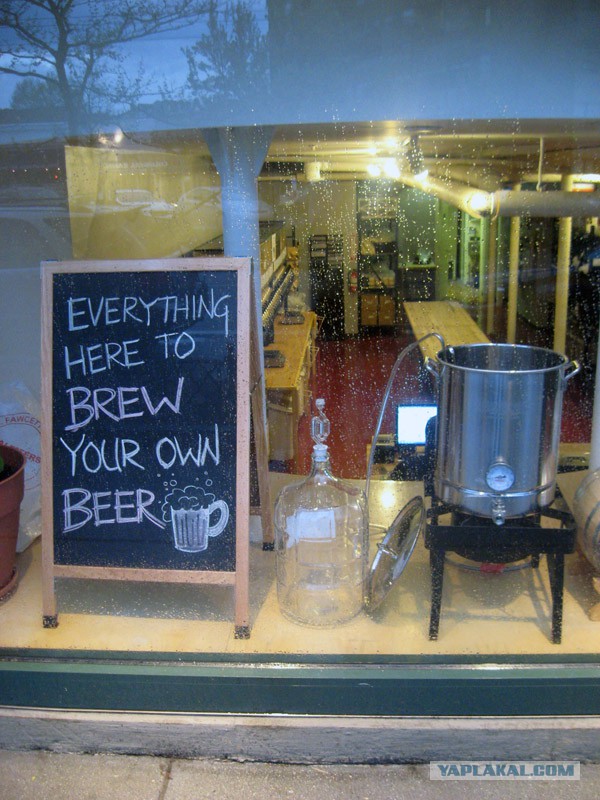 EVERYTHING
HERE TO
BREW
YOUR OWN
BEER
FAWCET
YAPLAKAL.COM